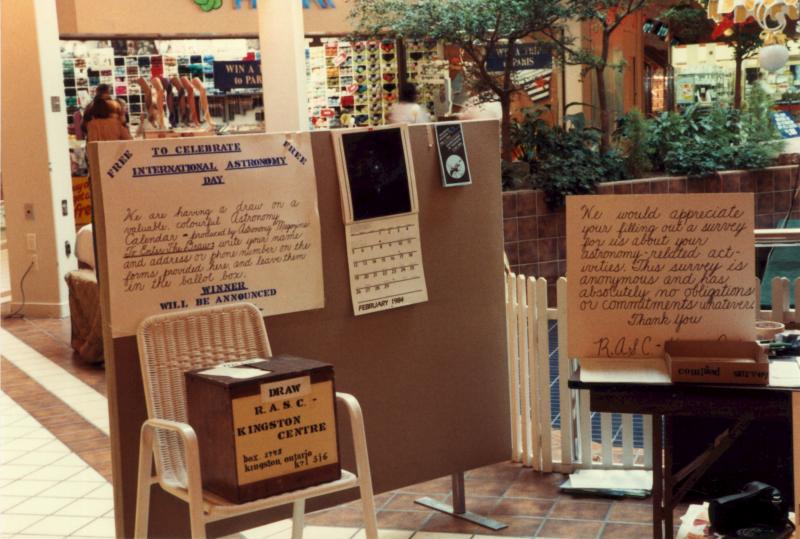 WIN A TRIP
WIN A TRIP
TO PARIS
FREE
FREE
TO CELEBRATE
INTERNATIONAL ASTRONOMY
DAY
We are having a draw on a
valuable, colourful Astronomy
Calendar - produced by Astronomy Magazine
To Enter The Draw: write your name
and address or phone number on the
forms provided here and leave them
in the ballot box.
WINNER
WILL BE ANNOUNCED
FEBRUARY 1984
We would appreciate
your filling out a survey
for us about your
astronomy-related act-
ivities. This survey is
anonymous and has
absolutely no obligations
or commitments whatever.
Thank you
R.A.S.C. -
DRAW
R. A. S. C. -
KINGSTON
CENTRE
box 1793
kingston, ontario
k7l 5J6